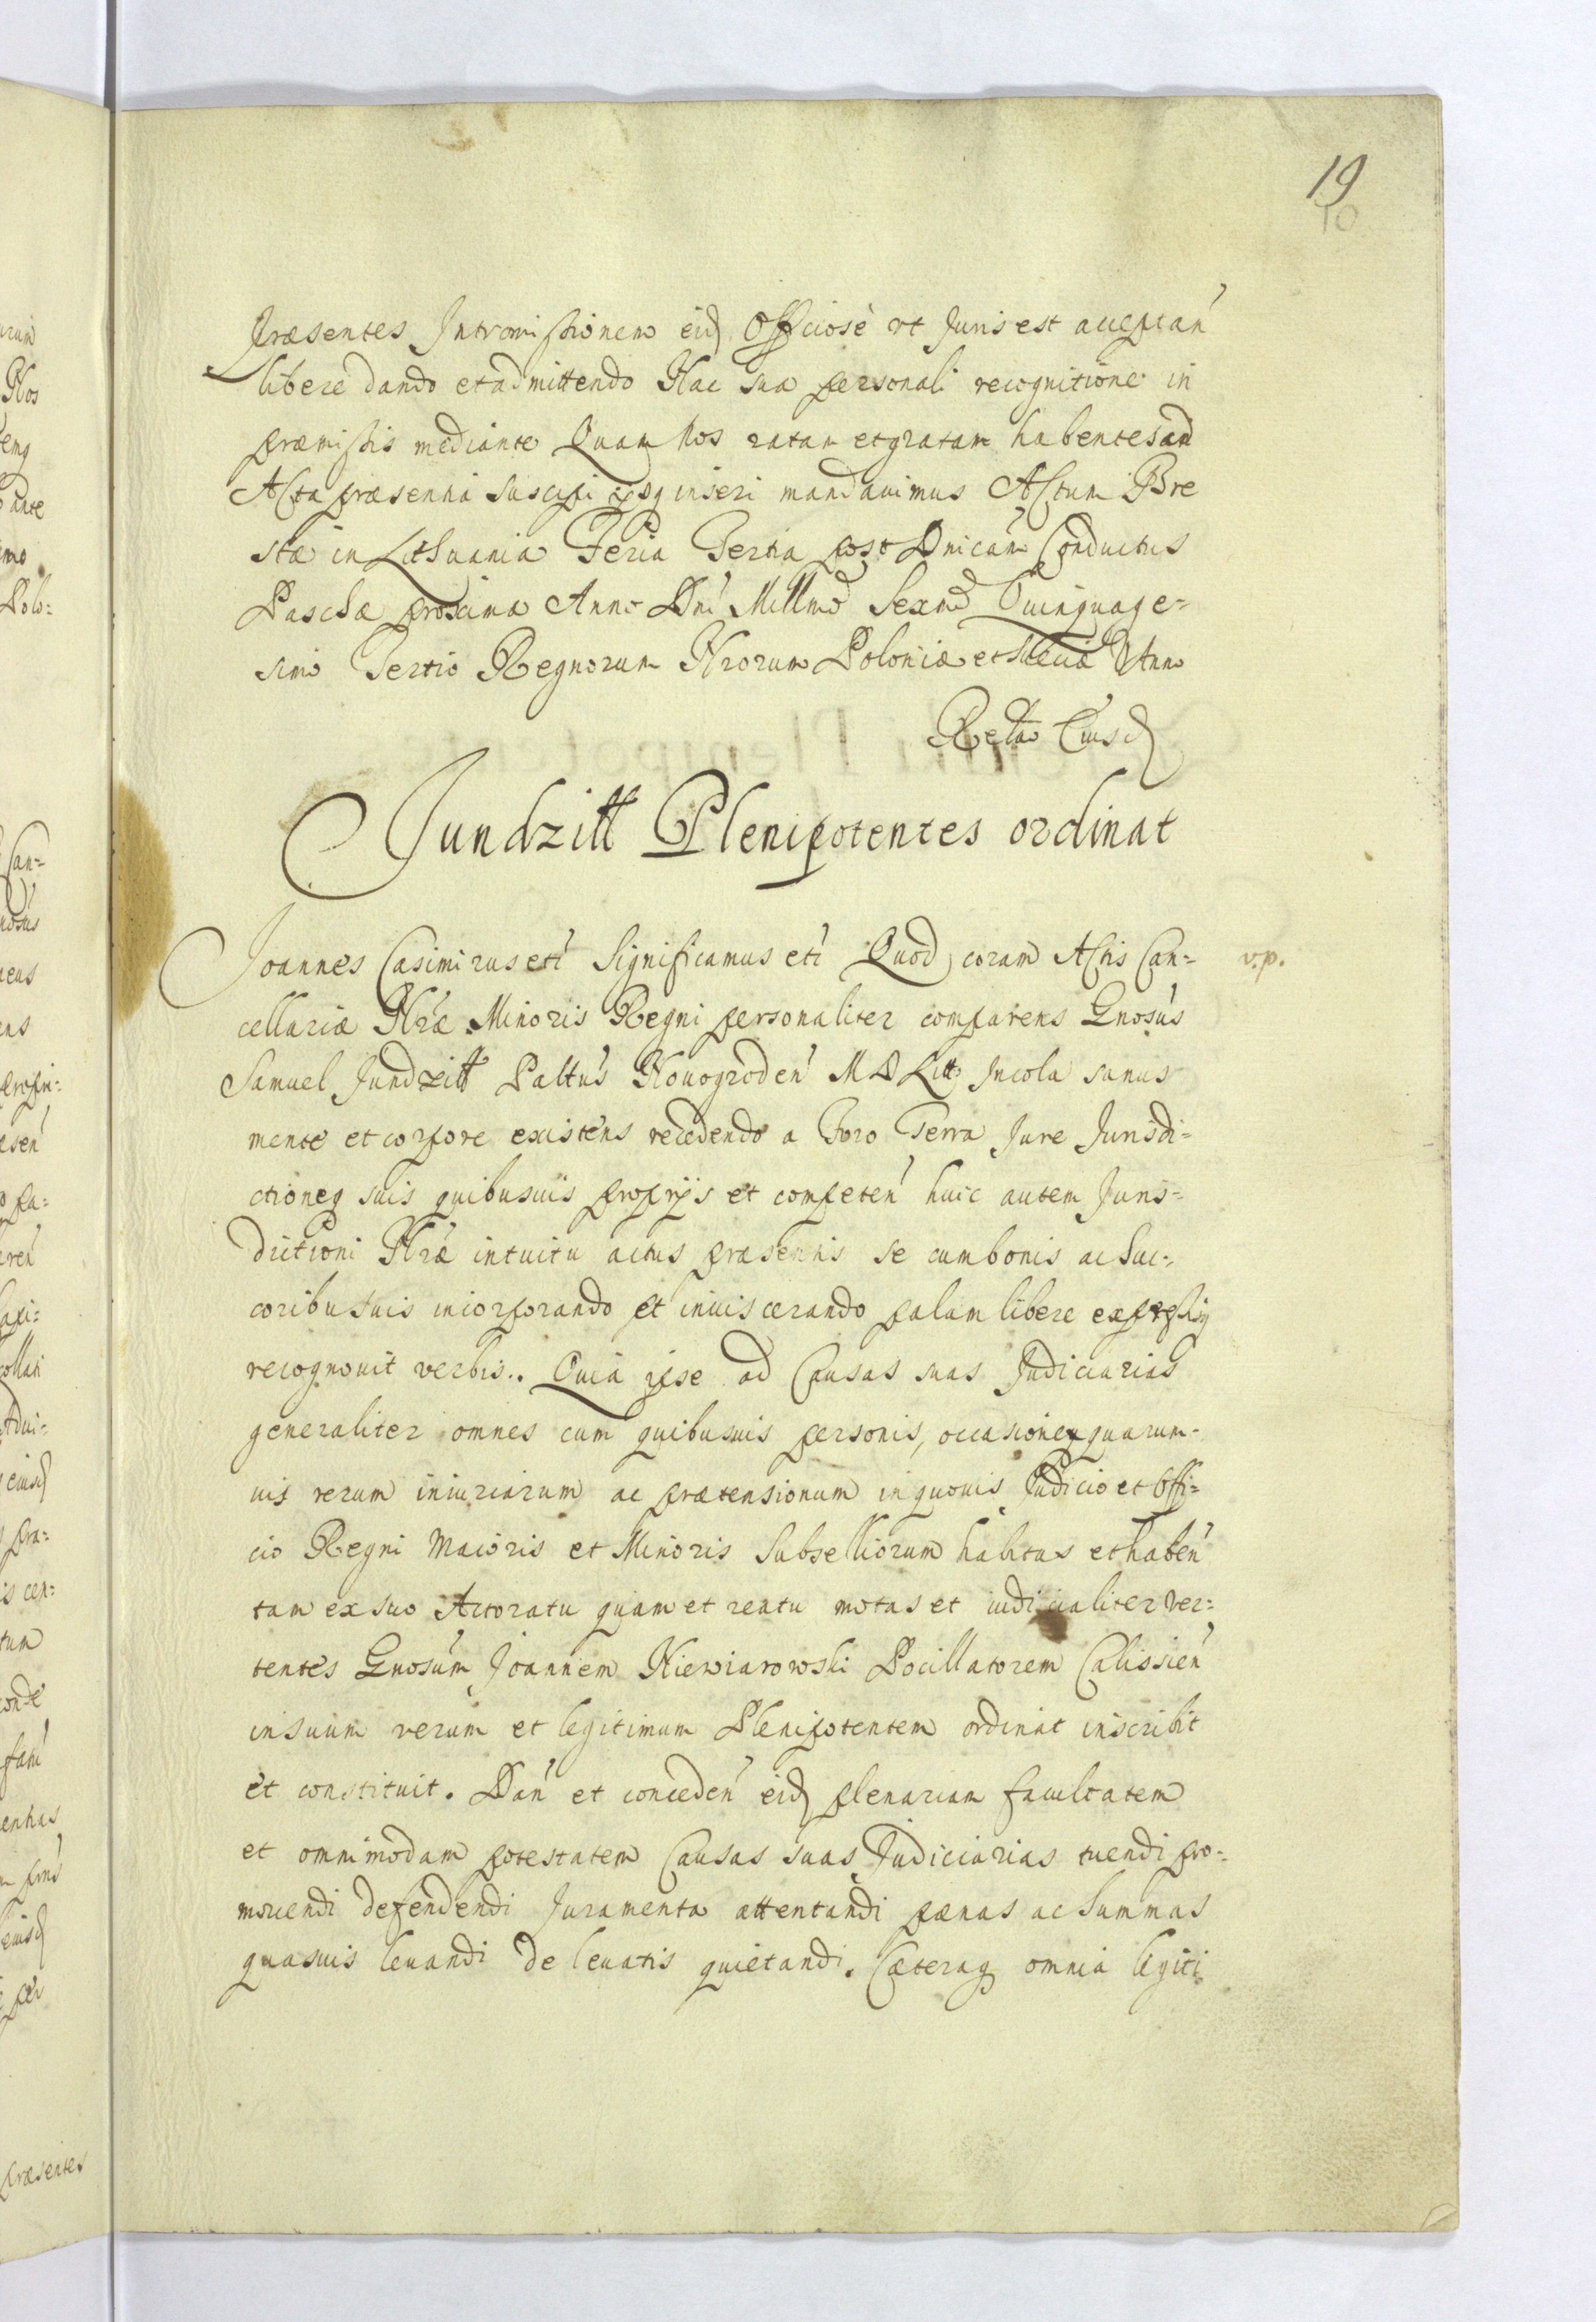 19
10
præsentes Intromissionem eid Officiose ut Juris est acceptan
libere dando et admittendo Hac sua personali recognitione in
præmissis mediante Quam Nos ratam et gratam habentes ad
Acta præsentia suscipi ijsq inseri mandavimus Actum Bre
stæ in Lithuania Feria Tertia post Dnicam Conductus
Paschæ proxima Anno Dni Millmo Sexmo Quinquage=
simo Tertio Regnorum Nrorum Poloniæ et Sueciæ Anno
Relao Eiusd
Jundziłł Plenipotentes ordinat
Joannes Casimirus etc Significamus etc Quod coram Actis Can=
v.p.
cellariæ Nræ Minoris Regni personaliter comparens Gnosus
Samuel Jundziłł Paltus Novogroden M D Litt Incola sanus
mente et corpore existens recedendo a Foro Terra Jure Jurisdi=
ctioneq suis quibusuis proprijs et competen huic autem Juris=
dictioni Nræ intuitu actus præsentis se cum bonis ac Suc=
coribu suis incorporando et inuiscerando palam libere expressisq
recognouit verbis.. Quia ipse ad Causas suas Judiciarias
generaliter omnes cum quibusuis personis, occasioneq quarum=
uis rerum iniuriarum ac prætensionum in quouis Judicio et Offi=
cio Regni Maioris et Minoris Subselliorum habitas et haben
tam ex suo Actoratu quam et reatu motas et iudicialiter ver=
tentes Gnosum Joannem Niewiarowski Pocillatorem Calissien
in suum verum et legitimum Plenipotentem ordinat inscribit
et constituit. Dan et conceden eid plenariam facultatem
et omnimodam potestatem Causas suas Judiciarias tuendi pro=
mouendi defendendi Juramenta attentandi pænas ac Summas
quasuis leuandi de leuatis quietandi. Cæteraq omnia legiti